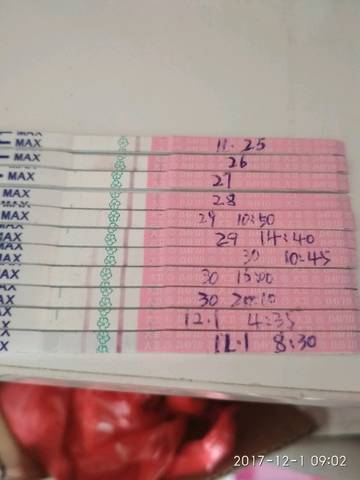 MAX 11.25
MAX 26
MAX 27
MAX 28
MAX 29 10:50
MAX 29 14:40
MAX 30 10:45
MAX 30 15:00
MAX 30 20:10
12.1 4:35
12.1 8:30
2017-12-1 09:02